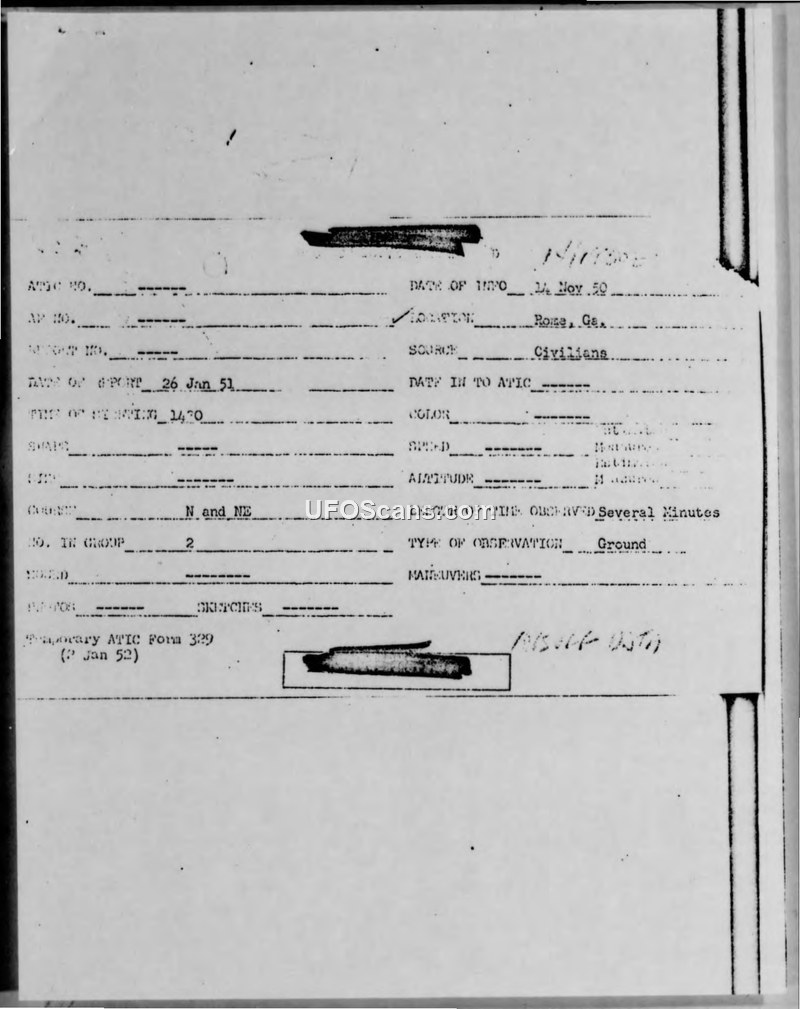 ATIC NO. ------ DATE OF INFO 14 Nov 50
AF NO. ------ LOCATION Rome, Ga.
REPORT NO. ----- SOURCE Civilians
DATE OF REPORT 26 Jan 51 DATE IN TO ATIC ------
TIME OF SIGHTING COLOR -------
SHAPE ----- SPEED -------
SIZE ------- ALTITUDE -------
COURSE N and NE TIME OBSERVED Several Minutes
NO. IN GROUP 2 TYPE OF OBSERVATION Ground
SOUND --------- MANEUVERS -------
PHOTOS ------ SKETCHES -------
Temporary ATIC Form 329
(2 Jan 52)
UFOScans.com